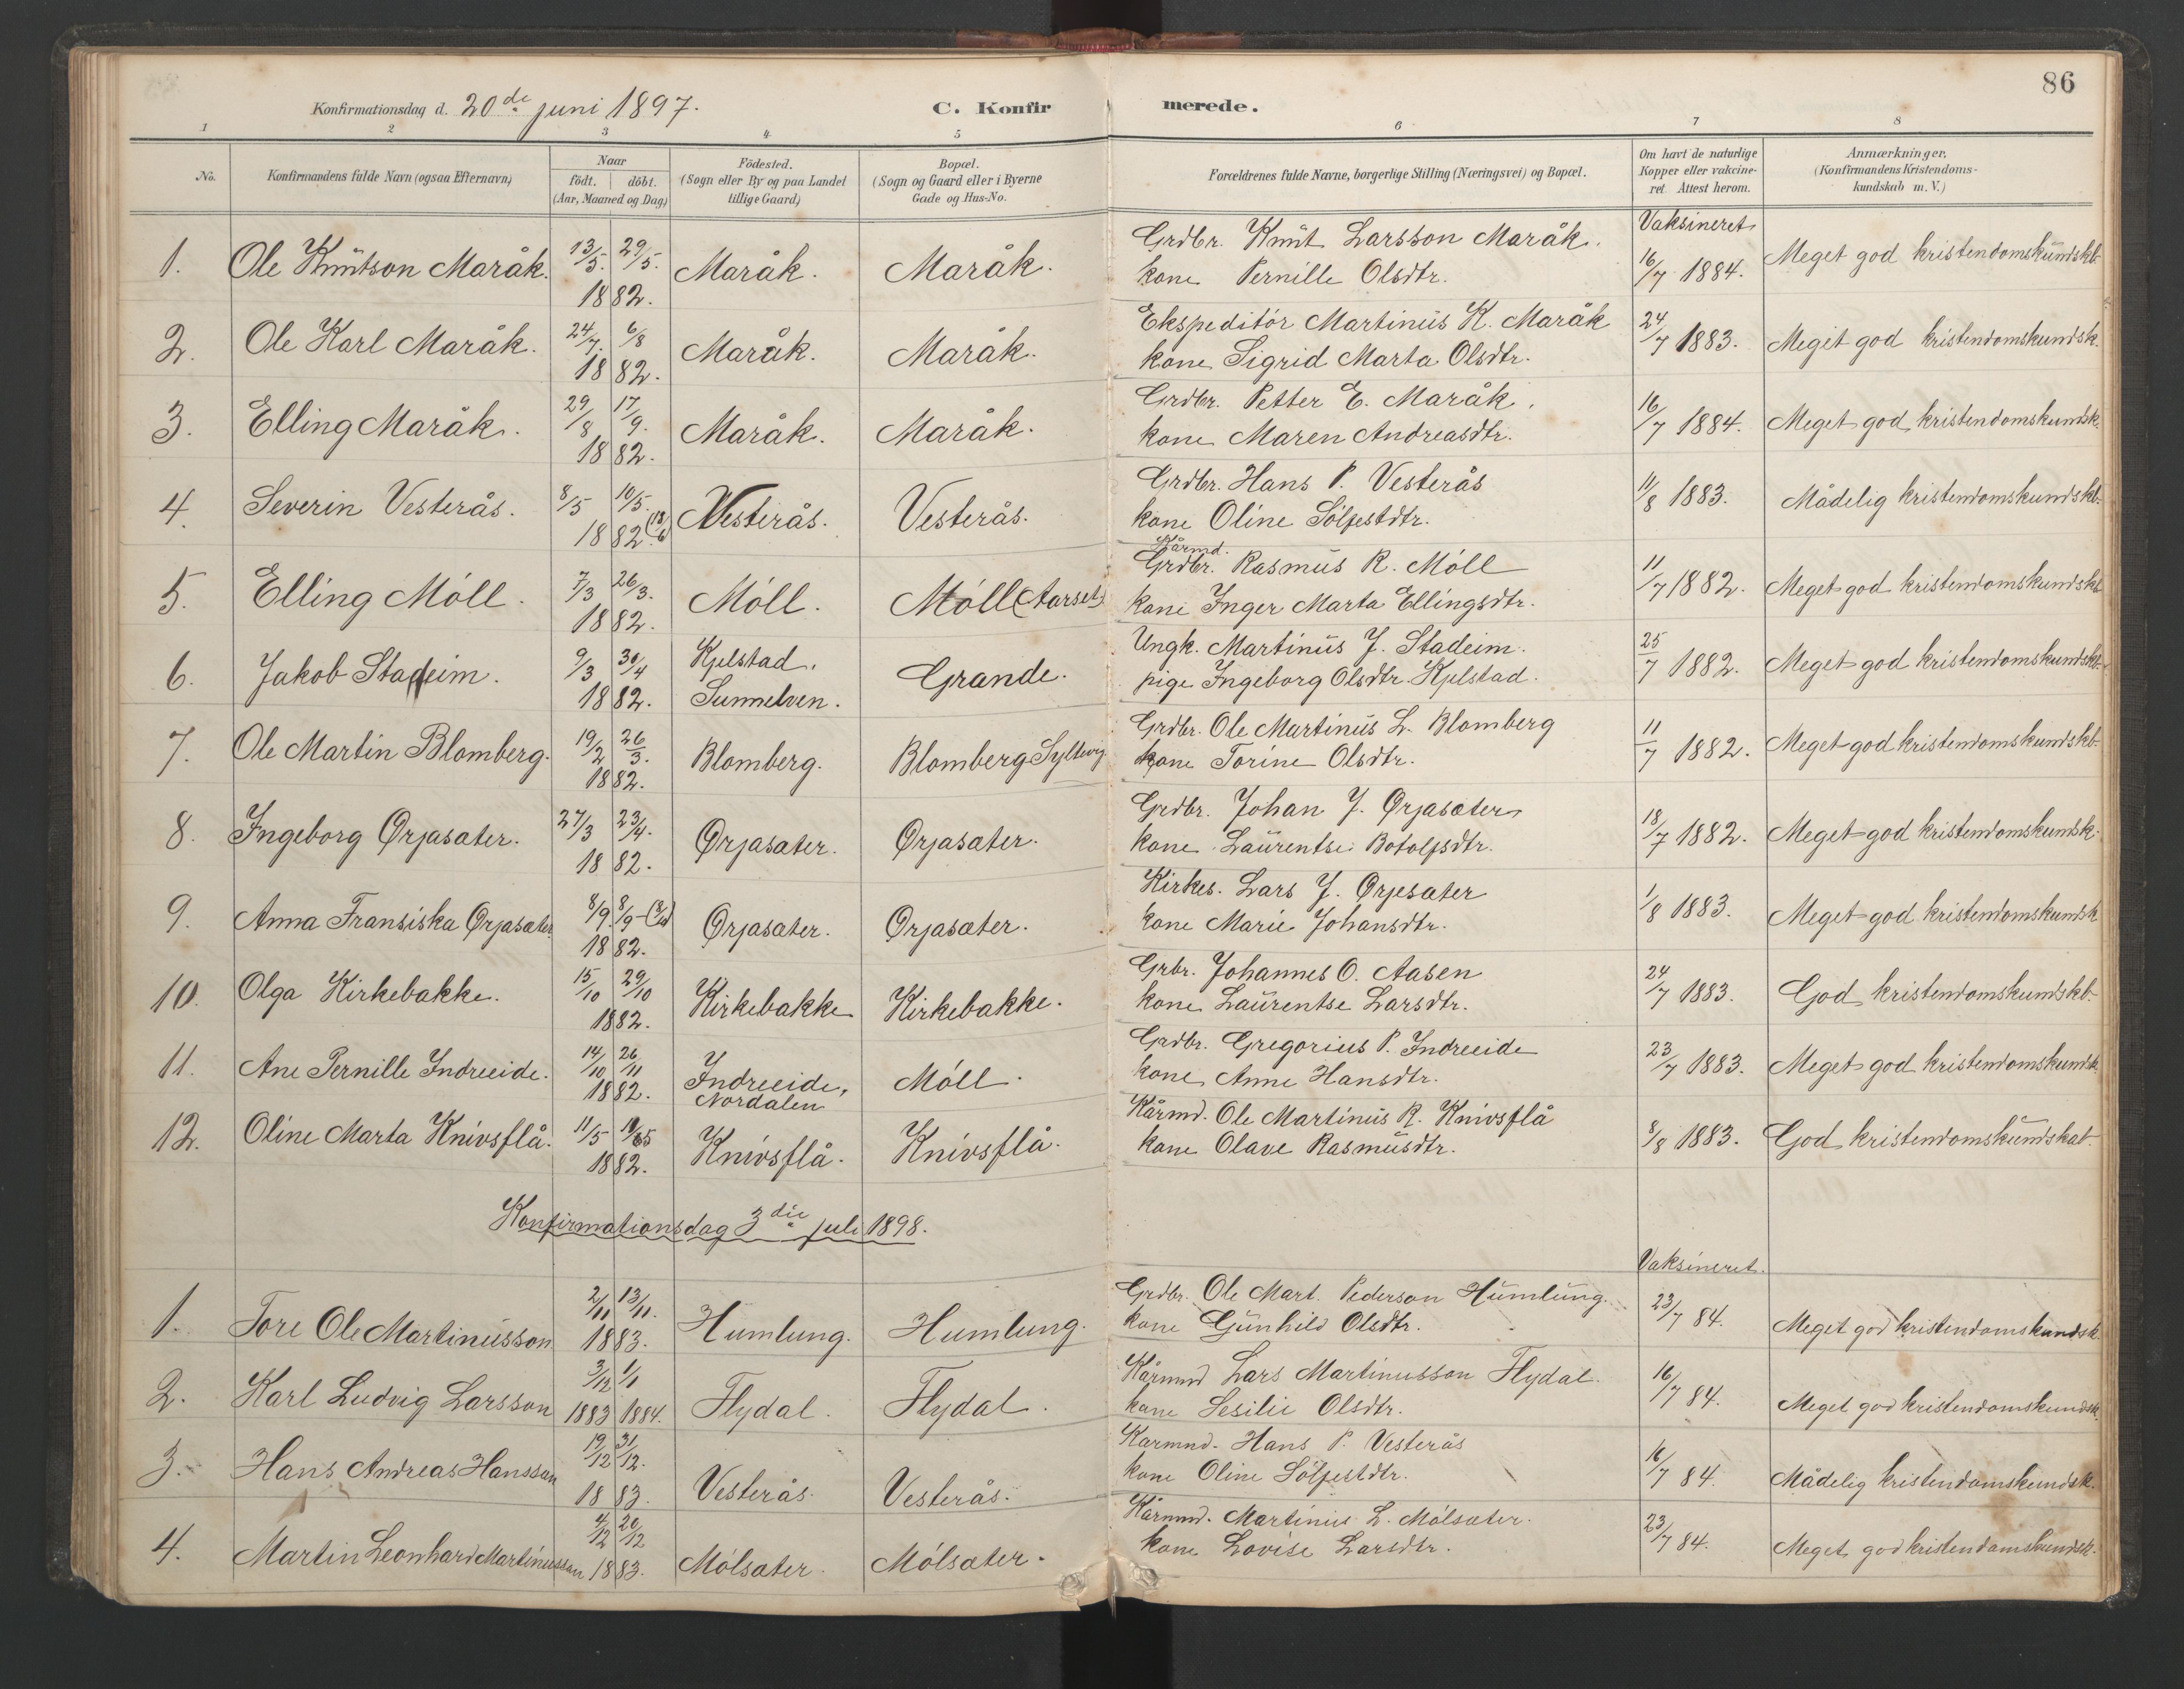 86
Konfirmationsdag d. 20de juni 1897. C. Konfirmerede.
1 2 3 4 5 6 7 8
No. Konfirmandens fulde Navn (ogsaa Efternavn) Naar födt. döbt. (Aar, Maaned og Dag) Födested. (Sogn eller By og paa Landet tillige Gaard) Bopæl. (Sogn og Gaard eller i Byerne Gade og Hus-No. Forældrenes fulde Navne, borgerlige Stilling (Næringsvei) og Bopæl. Om havt de naturlige Kopper eller vakcineret. Attest herom. Anmærkninger. (Konfirmandens Kristendomskundskab m. V.)
Vaksineret
1. Ole Knutson Maråk. 13/5. 29/5. 1882. Maråk. Maråk. Grdbr. Knut Larsson Maråk.
kone Pernille Olsdtr. 16/7 1884. Meget god kristendomskundskb.
2. Ole Karl Maråk. 24/7. 6/8 1882. Maråk. Maråk. Ekspeditór Martinus K. Maråk
kone Sigrid Marta Olsdtr. 24/7 1883. Meget god kristendomskundsk.
3. Elling Maråk. 29/8 17/9. 1882. Maråk. Maråk. Grdbr. Petter E. Maråk.
kone Maren Andreasdtr. 16/7 1884. Meget god kristendomskundsk.
4. Severin Vesterås. 8/5 10/5. 1882. (18/6) Vesterås. Vesterås. Grdbr. Hans P. Vesterås
kone Oline Sólfestdtr. 11/8 1883. Mådelig kristendomskundskb.
5. Elling Móll. 7/3 26/3. 1882. Móll. Móll (Aarset) Kårmd. Grdbr. Rasmus R. Móll
kone Inger Marta Ellingsdtr. 11/7 1882. Meget god kristendomskundskb
6. Jakob Stadeim. 9/3 30/4 1882. Kjelstad, Sunnelven. Grande. Ungk. Martinus J. Stadeim.
pige Ingeborg Olsdtr. Kjelstad. 25/7 1882. Meget god kristendomskundskb.
7. Ole Martin Blomberg. 19/2 26/3. 1882. Blomberg. Blomberg Syltevig Grdbr. Ole Martinus L. Blomberg
kone Torine Olsdtr. 11/7 1882. Meget god kristendomskundskb.
8. Ingeborg Ørjasæter. 27/3 23/4. 1882. Ørjasæter. Ørjasæter. Grdbr. Johan J. Ørjasæter
kone Laurentse Botolfsdtr. 18/7 1882. Meget god kristendomskundsk.
9. Anna Fransiska Ørjasæter 8/9. 8/9 1882. Ørjasæter. Ørjasæter. Kirkes. Lars J. Ørjesæter
kone Marie Johansdtr. 1/8 1883. Meget god kristendomskundsk
10. Olga Kirkebakke. 15/10 29/10 1882. Kirkebakke Kirkebakke. Grbr. Johannes O. Aasen
kone Laurentse Larsdtr. 24/7 1883. God kristendomskundskb.
11. Ane Pernille Indreeide. 14/10 26/11 1882. Indreeide, Nordalen Móll. Grdbr. Gregorius P. Indreeide
kone Anne Hansdtr. 23/7 1883. Meget god kristendomskundsk.
12. Oline Marta Knivsflå. 11/5 1882. Knivsflå. Knivsflå. Kårmd. Ole Martinus R. Knivsflå
kone Olave Rasmusdtr. 8/8 1883. God kristendomskundskab
Konfirmationsdag 3die juli 1898.
Vaksineret.
1. Tore Ole Martinusson 2/11 13/11. 1883. Humlung. Humlung. Grdbr. Ole Mart. Pederson Humlung.
kone Gunhild Olsdtr. 23/7 84. Meget god kristendomskundsk.
2. Karl Ludvig Larsson 3/12 1883 1/1 1884. Flydal. Flydal. Kårmnd Lars Martinusson Flydal.
kone Sesilie Olsdtr. 16/7 84. Meget god kristendomskundsk.
3. Hans Andreas Hansson 19/12 31/12. 1883. Vesterås. Vesterås. Karmnd. Hans P. Vesterås
kone Oline Sólfestdtr. 16/7 84. Mådelig kristendomskundsk.
4. Martin Leonhard Martinusson 4/12 20/12 1883. Mólsæter. Mólsæter. Kårmnd. Martinus L. Mólsæter.
kone Lovise Larsdtr. 23/7 84. Meget god kristendomskundsk.